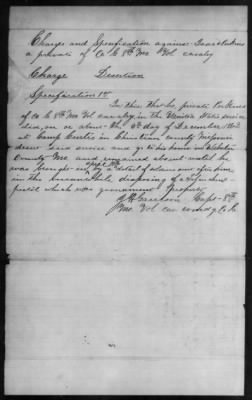 Charges and Specification against Isaac Perkins
a private of Co K 8th Mo Vol cavalry
Charge Desertion
Specification 1st
In this That he, private Perkins
of Co K 8th Mo Vol cavalry, in the United States service
did, on or about the 4th day of December 1862
at Camp Curtis in Christian county Missouri
desert said service and go to his home in Webster
County Mo and remained absent until he
was brought in by a detail of
in the meanwhile disposing of a
pistol which was government property
Capt 8th
Mo Vol cav comdg Co K